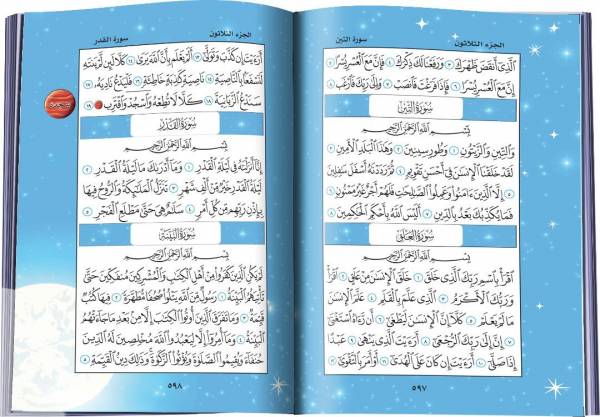 الجزء الثلاثون سورة التين
ٱلَّذِىٓ أَنقَضَ ظَهْرَكَ ٣ وَرَفَعْنَا لَكَ ذِكْرَكَ ٤ فَإِنَّ مَعَ ٱلْعُسْرِ يُسْرًا
٥ إِنَّ مَعَ ٱلْعُسْرِ يُسْرًا ٦ فَإِذَا فَرَغْتَ فَٱنصَبْ ٧ وَإِلَىٰ رَبِّكَ فَٱرْغَب ٨
سُورَةُ التِّينِ
بِسْمِ ٱللَّهِ ٱلرَّحْمَٰنِ ٱلرَّحِيمِ
وَٱلتِّينِ وَٱلزَّيْتُونِ ١ وَطُورِ سِينِينَ ٢ وَهَٰذَا ٱلْبَلَدِ ٱلْأَمِينِ ٣
لَقَدْ خَلَقْنَا ٱلْإِنسَٰنَ فِىٓ أَحْسَنِ تَقْوِيمٍ ٤ ثُمَّ رَدَدْنَٰهُ أَسْفَلَ سَٰفِلِينَ
٥ إِلَّا ٱلَّذِينَ ءَامَنُوا۟ وَعَمِلُوا۟ ٱلصَّٰلِحَٰتِ فَلَهُمْ أَجْرٌ غَيْرُ مَمْنُونٍ ٦
فَمَا يُكَذِّبُكَ بَعْدُ بِٱلدِّينِ ٧ أَلَيْسَ ٱللَّهُ بِأَحْكَمِ ٱلْحَٰكِمِينَ ٨
سُورَةُ العَلَقِ
بِسْمِ ٱللَّهِ ٱلرَّحْمَٰنِ ٱلرَّحِيمِ
ٱقْرَأْ بِٱسْمِ رَبِّكَ ٱلَّذِى خَلَقَ ١ خَلَقَ ٱلْإِنسَٰنَ مِنْ عَلَقٍ ٢ ٱقْرَأْ
وَرَبُّكَ ٱلْأَكْرَمُ ٣ ٱلَّذِى عَلَّمَ بِٱلْقَلَمِ ٤ عَلَّمَ ٱلْإِنسَٰنَ
مَا لَمْ يَعْلَمْ ٥ كَلَّآ إِنَّ ٱلْإِنسَٰنَ لَيَطْغَىٰٓ ٦ أَن رَّءَاهُ ٱسْتَغْنَىٰٓ
٧ إِنَّ إِلَىٰ رَبِّكَ ٱلرُّجْعَىٰٓ ٨ أَرَءَيْتَ ٱلَّذِى يَنْهَىٰ ٩ عَبْدًا
إِذَا صَلَّىٰٓ ١٠ أَرَءَيْتَ إِن كَانَ عَلَى ٱلْهُدَىٰٓ ١١ أَوْ أَمَرَ بِٱلتَّقْوَىٰٓ ١٢
٥٩٧
الجزء الثلاثون سورة القدر
أَرَءَيْتَ إِن كَذَّبَ وَتَوَلَّىٰٓ ١٣ أَلَمْ يَعْلَم بِأَنَّ ٱللَّهَ يَرَىٰ ١٤ كَلَّا لَئِن لَّمْ يَنتَهِ
لَنَسْفَعًۢا بِٱلنَّاصِيَةِ ١٥ نَاصِيَةٍ كَٰذِبَةٍ خَاطِئَةٍ ١٦ فَلْيَدْعُ نَادِيَهُۥ ١٧
سَنَدْعُ ٱلزَّبَانِيَةَ ١٨ كَلَّا لَا تُطِعْهُ وَٱسْجُدْ وَٱقْتَرِب ۩ ١٩
سُورَةُ القَدْرِ
بِسْمِ ٱللَّهِ ٱلرَّحْمَٰنِ ٱلرَّحِيمِ
إِنَّآ أَنزَلْنَٰهُ فِى لَيْلَةِ ٱلْقَدْرِ ١ وَمَآ أَدْرَىٰكَ مَا لَيْلَةُ ٱلْقَدْرِ ٢
لَيْلَةُ ٱلْقَدْرِ خَيْرٌ مِّنْ أَلْفِ شَهْرٍ ٣ تَنَزَّلُ ٱلْمَلَٰٓئِكَةُ وَٱلرُّوحُ فِيهَا
بِإِذْنِ رَبِّهِم مِّن كُلِّ أَمْرٍ ٤ سَلَٰمٌ هِىَ حَتَّىٰ مَطْلَعِ ٱلْفَجْرِ ٥
سُورَةُ البَيِّنَةِ
بِسْمِ ٱللَّهِ ٱلرَّحْمَٰنِ ٱلرَّحِيمِ
لَمْ يَكُنِ ٱلَّذِينَ كَفَرُوا۟ مِنْ أَهْلِ ٱلْكِتَٰبِ وَٱلْمُشْرِكِينَ مُنفَكِّينَ حَتَّىٰ
تَأْتِيَهُمُ ٱلْبَيِّنَةُ ١ رَسُولٌ مِّنَ ٱللَّهِ يَتْلُوا۟ صُحُفًا مُّطَهَّرَةً ٢ فِيهَا كُتُبٌ
قَيِّمَةٌ ٣ وَمَا تَفَرَّقَ ٱلَّذِينَ أُوتُوا۟ ٱلْكِتَٰبَ إِلَّا مِنۢ بَعْدِ مَا جَآءَتْهُمُ
ٱلْبَيِّنَةُ ٤ وَمَآ أُمِرُوٓا۟ إِلَّا لِيَعْبُدُوا۟ ٱللَّهَ مُخْلِصِينَ لَهُ ٱلدِّينَ
حُنَفَآءَ وَيُقِيمُوا۟ ٱلصَّلَوٰةَ وَيُؤْتُوا۟ ٱلزَّكَوٰةَ وَذَٰلِكَ دِينُ ٱلْقَيِّمَةِ ٥
٥٩٨